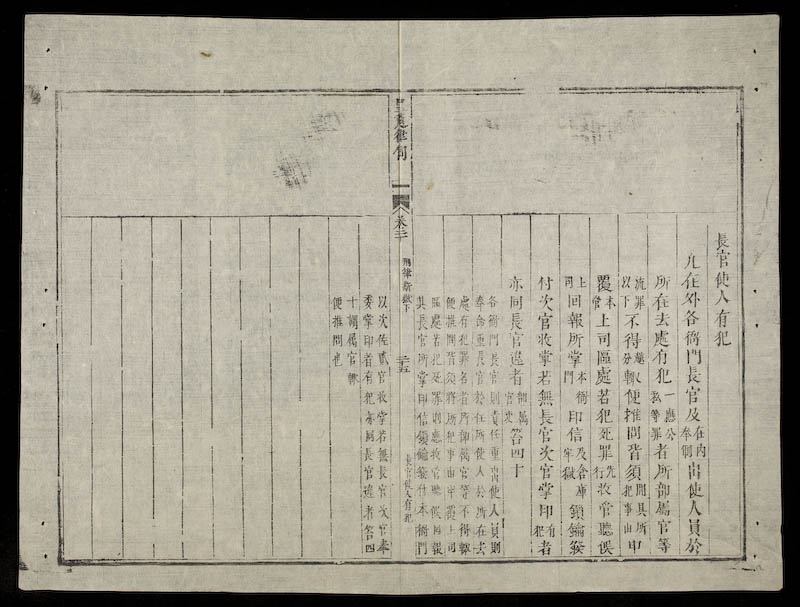 長官使人有犯
凡在外各衙門長官及在內奉制出使人員於
所在去處有犯一應公私等罪者所部屬官等
流罪以下不得擅自輒便推問皆須開具所犯事由申
覆本管上司區處若犯死罪先行收管聽候
上司回報所掌本衙門印信及倉庫牢獄鎖鑰發
付次官收掌若無長官次官掌印有犯者
亦同長官違者部屬官吏笞四十
各衙門長官則責任重出使人員則
奉命重長官於任所使人於所在去
處有犯罪名者所部屬官等不得輒
便推問皆須將所犯事由申覆上司
區處若犯死罪則應收管聽候回報
其長官所掌印信鎖鑰發付本衙門
皇越律例
卷二
刑律斷獄下
二十五
長官使人有犯
以次佐貳官收掌若無長官次官奉
委掌印者有犯亦同長官違者笞四
十謂屬官輒
便推問也